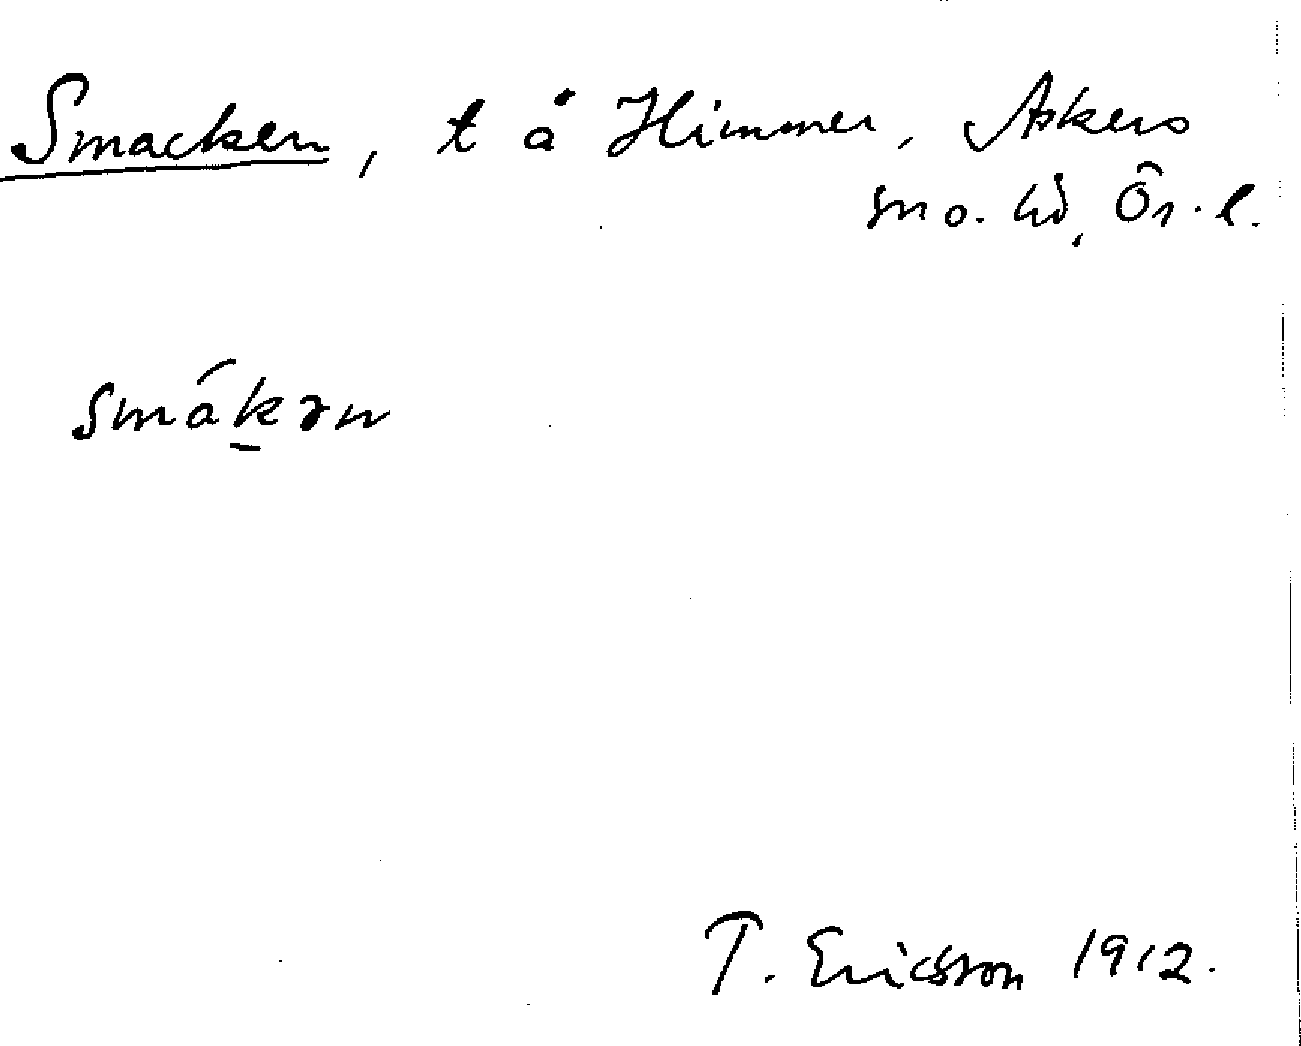 Smacken, t å Himmer, Askers
sn o. hd, Ör. l.
smák̲ən
T. Ericsson 1912.